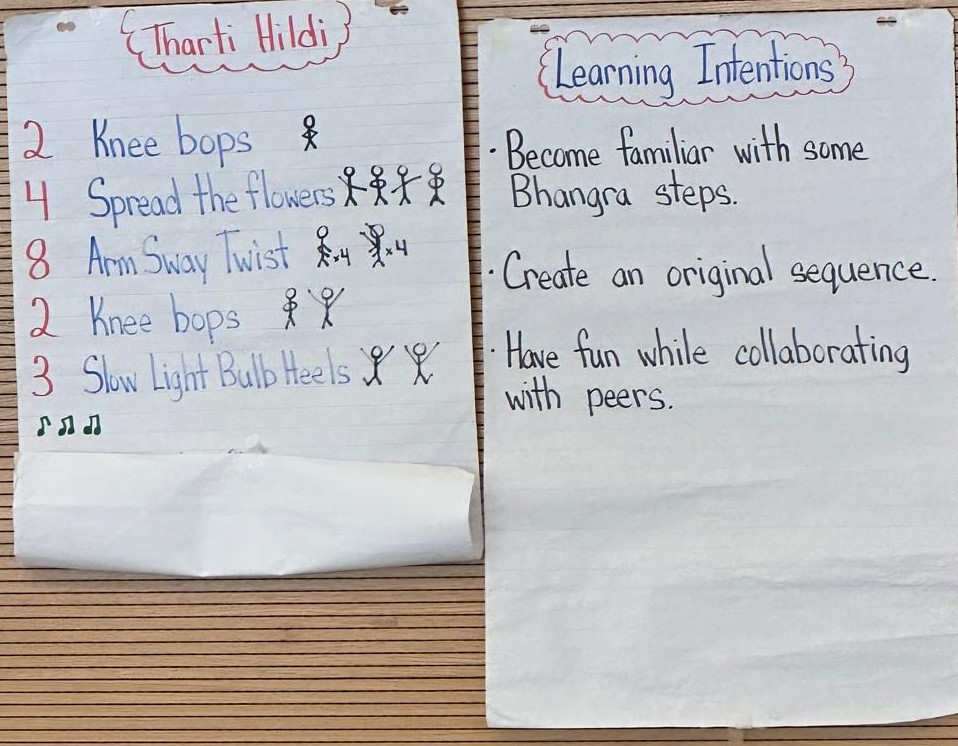 Tharti Hildi
2 Knee bops
4 Spread the flowers
8 Arm Sway Twist x4 x4
2 Knee bops
3 Slow Light Bulb Heels
Learning Intentions
· Become familiar with some
Bhangra steps.
· Create an original sequence.
· Have fun while collaborating
with peers.